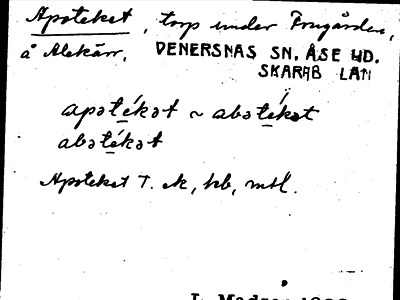 Apoteket, torp under Frugården,
å Alekärr, VENERSNÄS SN, ÅSE HD.
SKARAB LÄN
apətékət ~ abətékət
abətékət
Apoteket T. ek, hb, mtl.